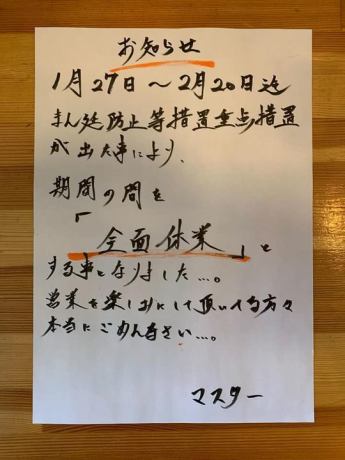 お知らせ
1月27日〜2月20日迄
まん延防止等措置重点措置
が出た事により、
期間の間を
「全面休業」と
する事となりました…。
営業を楽しみにして頂いてる方々
本当にごめんなさい…。
マスター